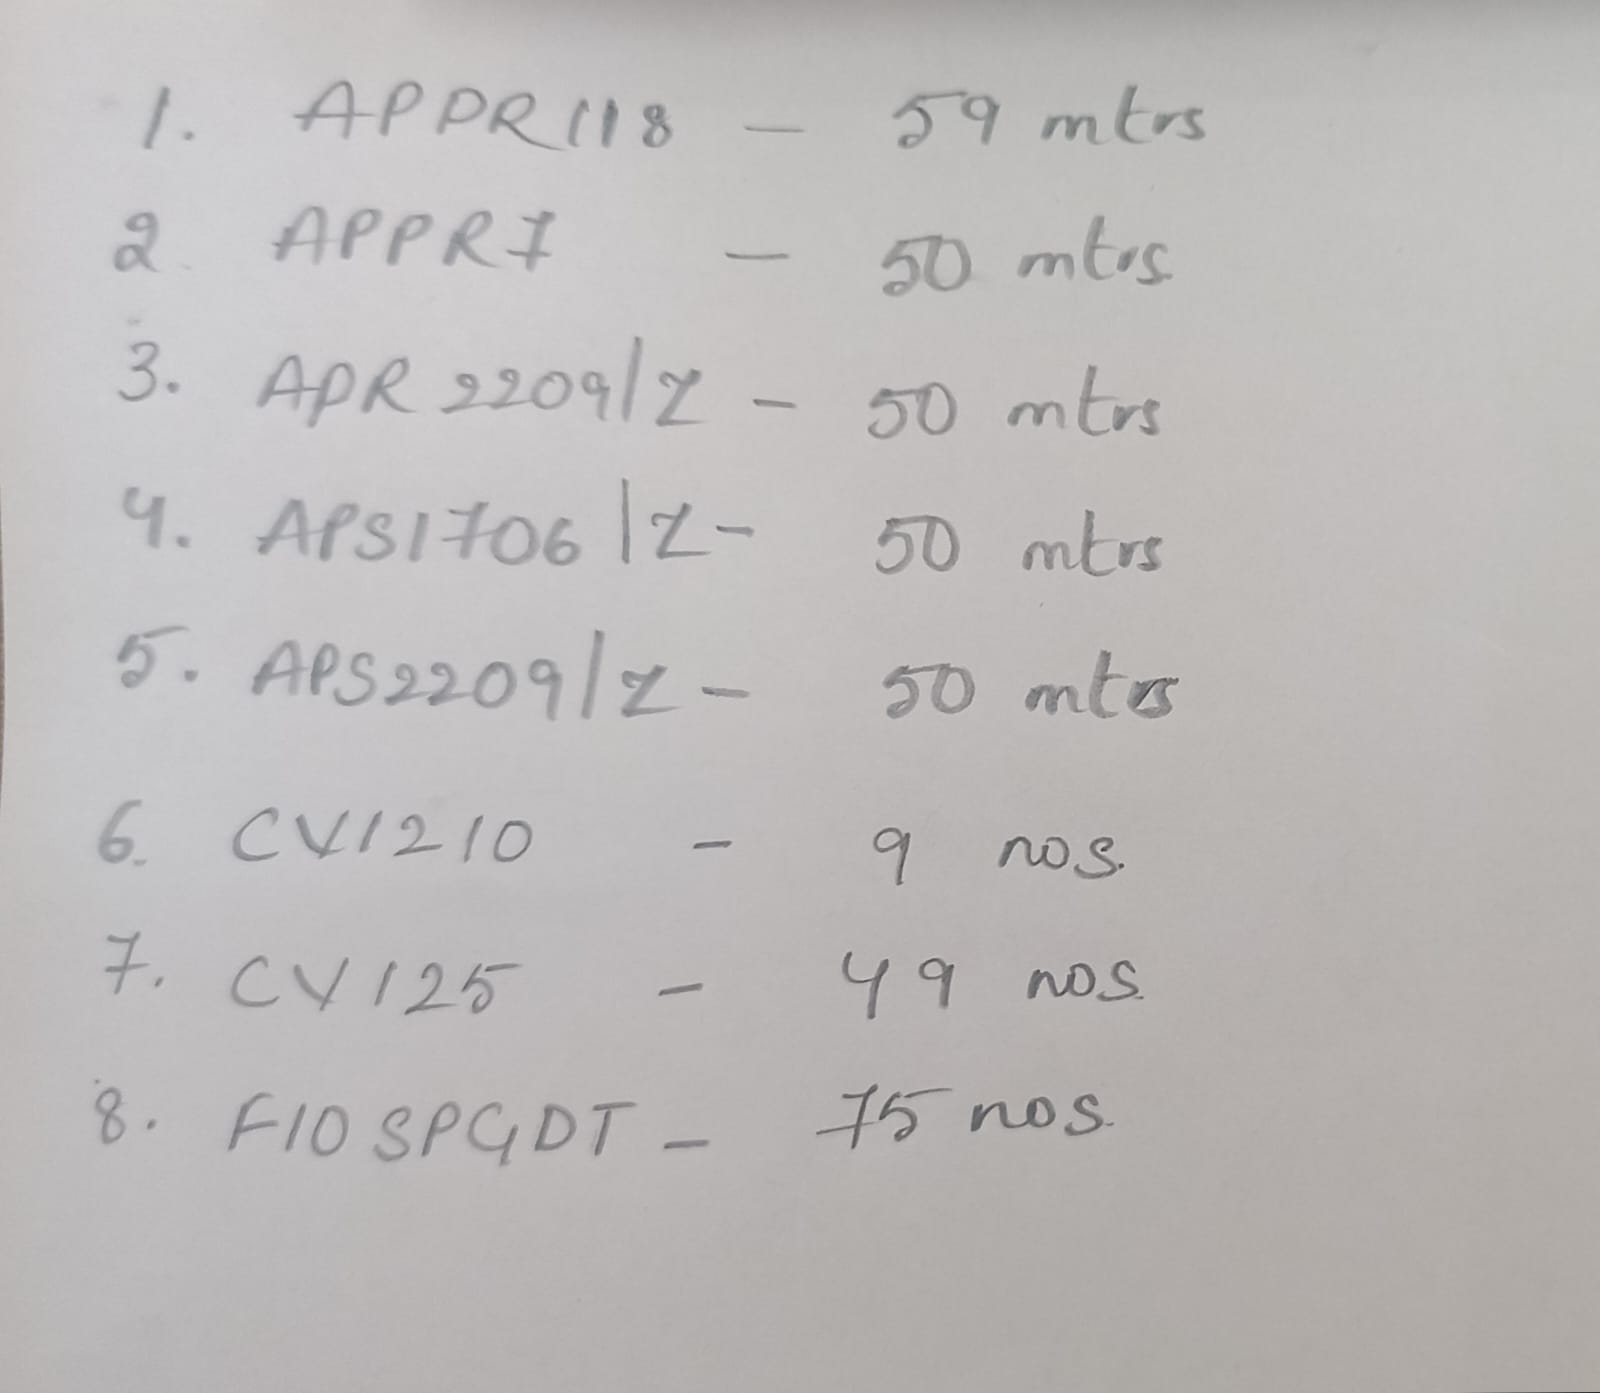 1. APPR118 - 59 mtrs
2. APPR7 - 50 mtrs.
3. APR 2209/Z - 50 mtrs
4. APS1706/Z - 50 mtrs
5. APS2209/Z - 50 mtrs
6. CV1210 - 9 nos.
7. CV125 - 49 nos.
8. F10SPGDT - 75 nos.